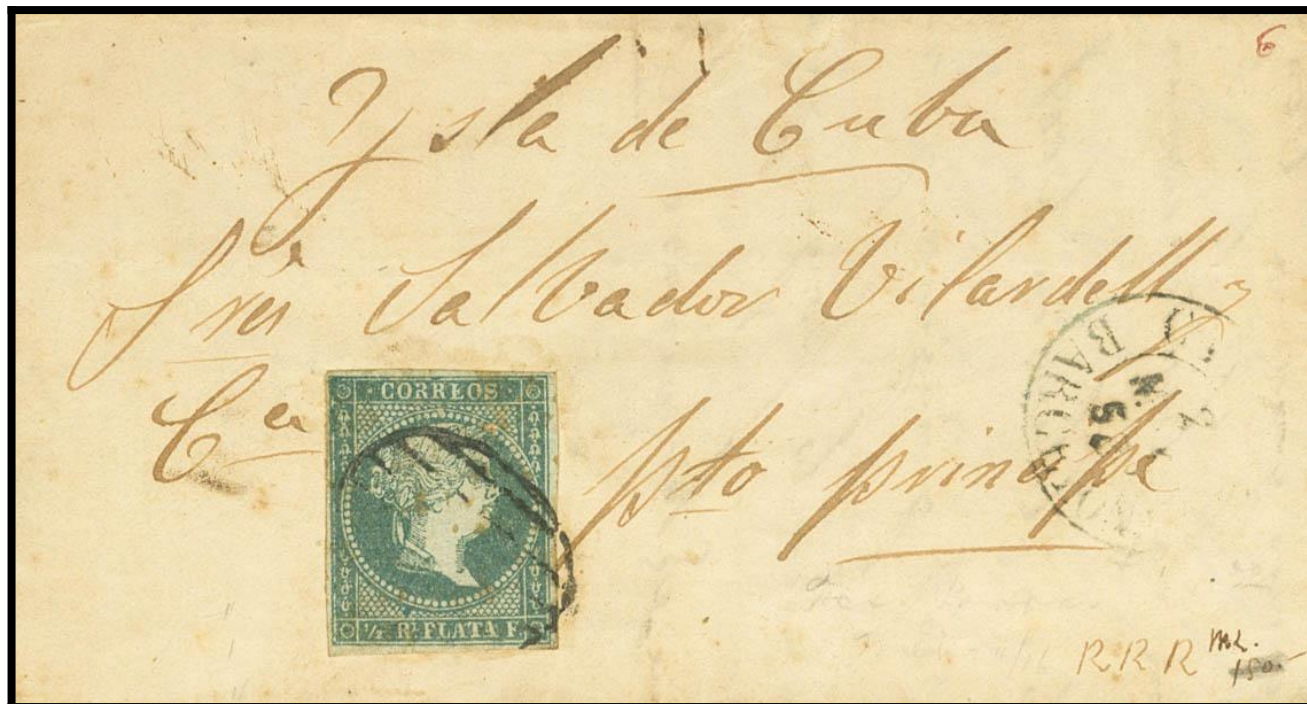 6
Ysla de Cuba
Sres Salvador Vilardell y
Ca
pto principe
CORREOS
½ Rl PLATA F.
BARCELONA
RRR